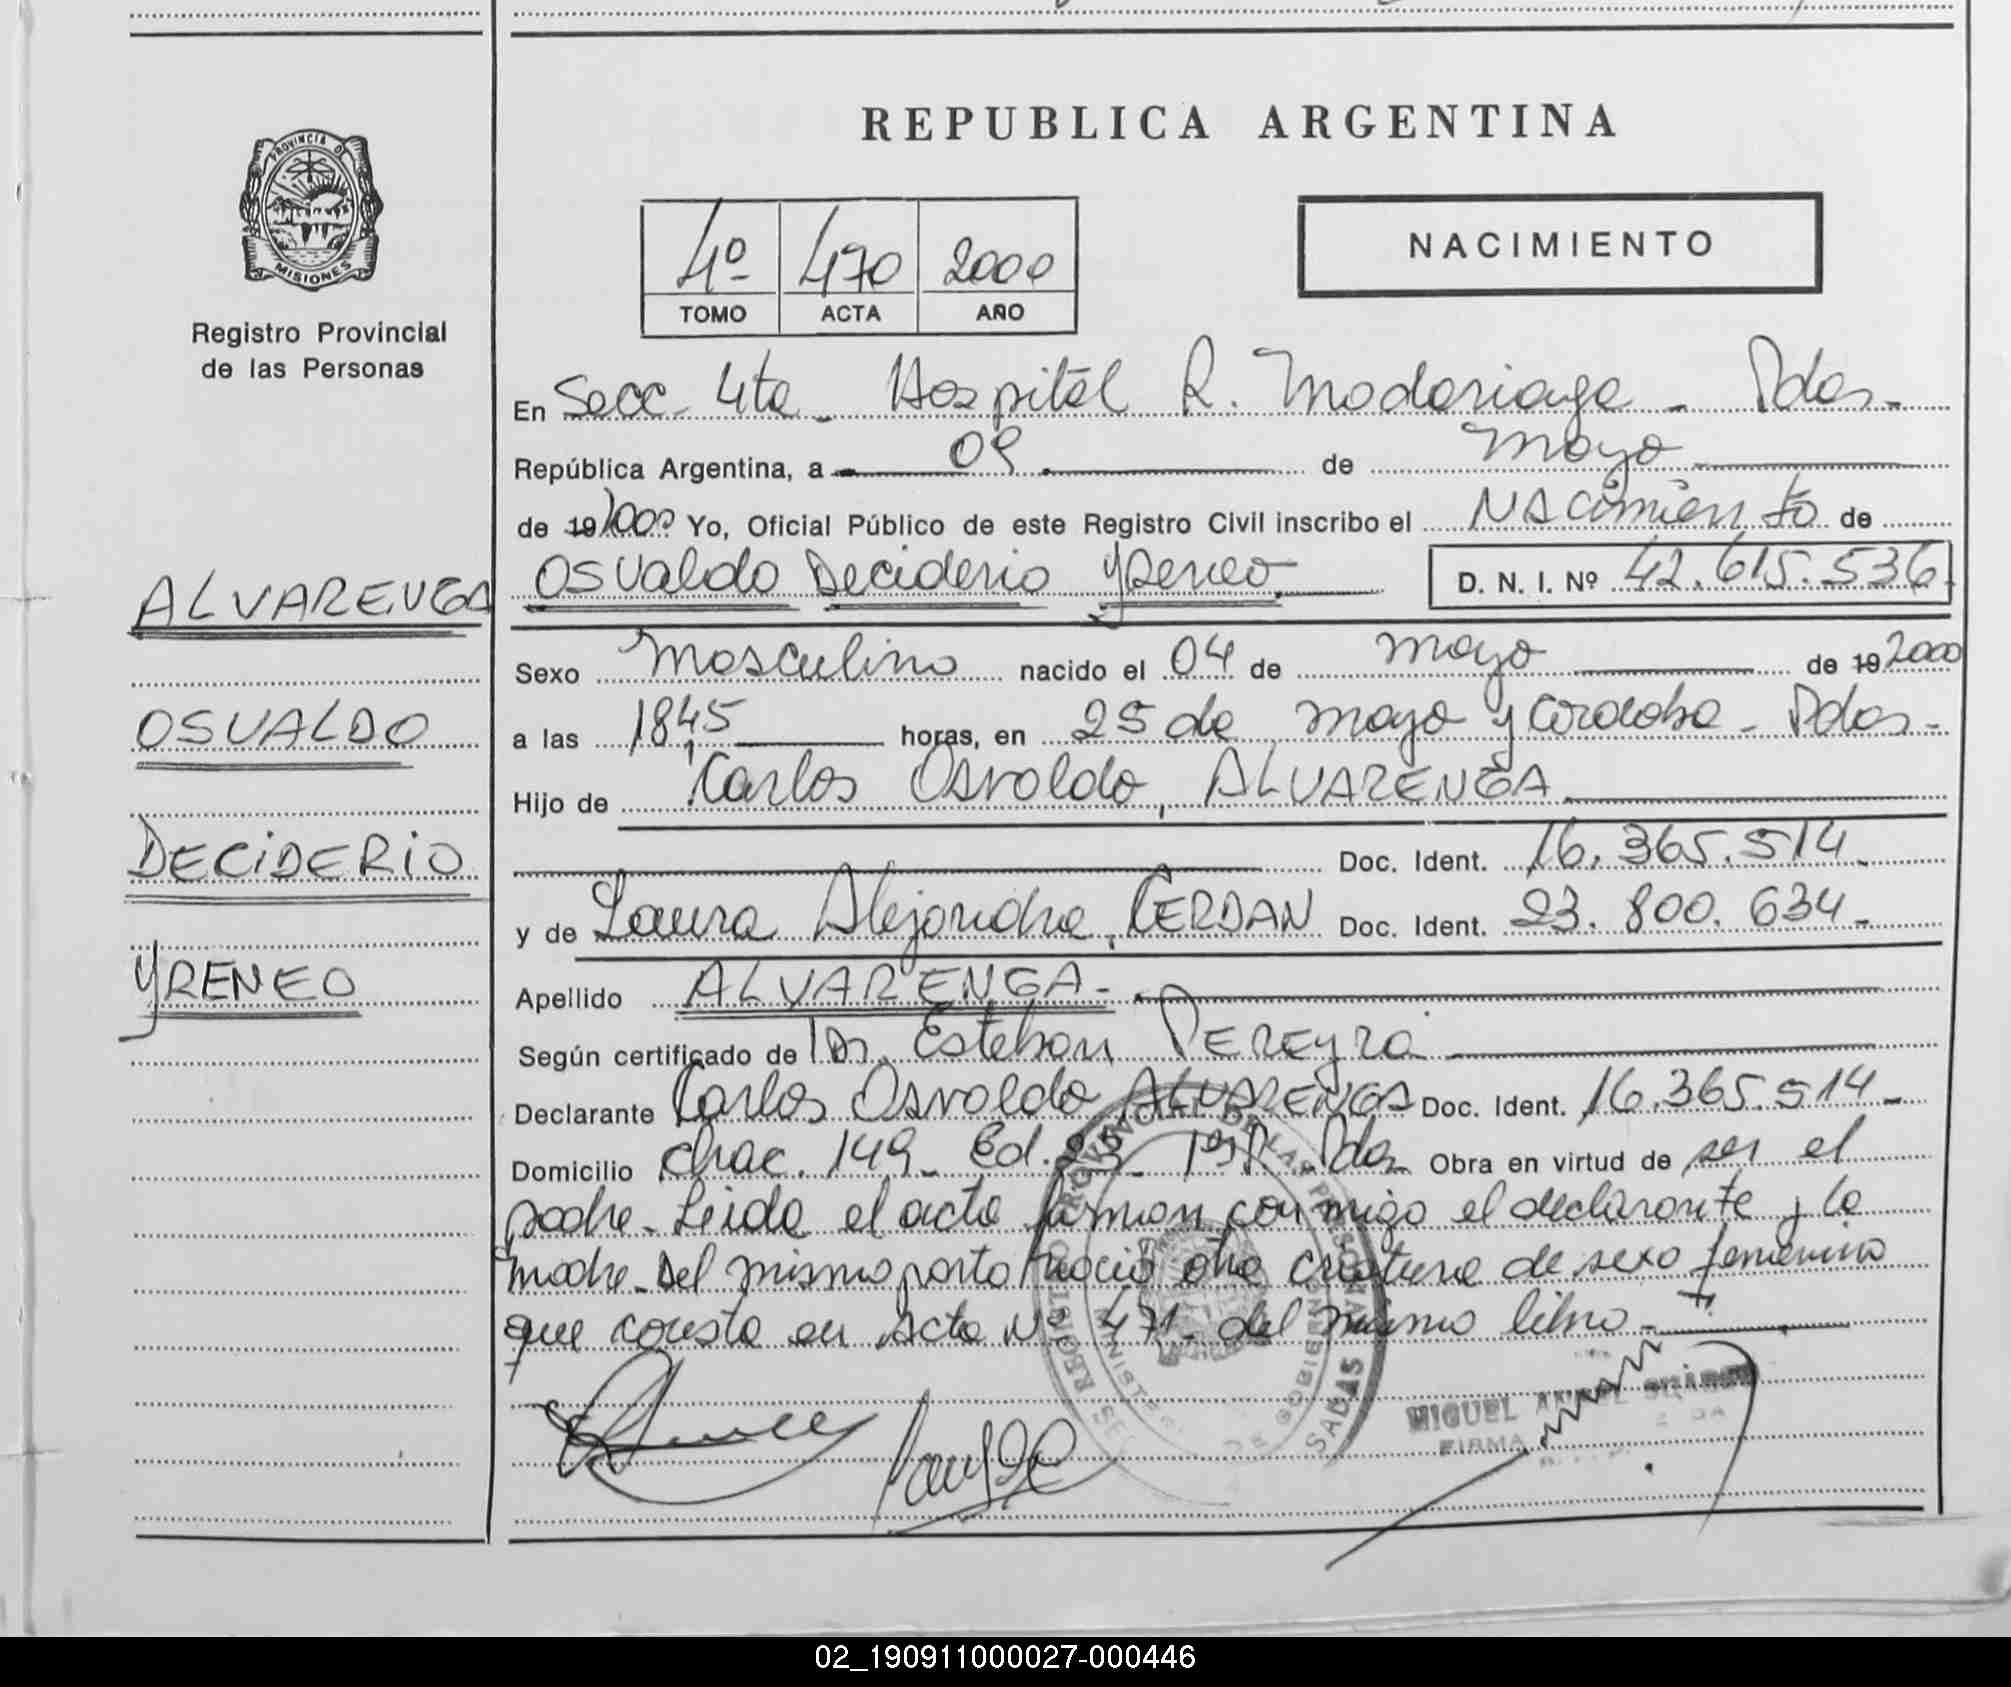 PROVINCIA DE
MISIONES
Registro Provincial
de las Personas
ALVARENGA
OSVALDO
DECIDERIO
YRENEO
REPUBLICA ARGENTINA
4º 470 2000
TOMO ACTA AÑO
NACIMIENTO
En Secc. 4ta - Hospital R. Madariaga - Pdas -
República Argentina, a 09 de Mayo
de 19 2000 Yo, Oficial Público de este Registro Civil inscribo el Nacimiento de
Osvaldo Deciderio Yreneo D. N. I. Nº 42.615.536
Sexo Masculino nacido el 04 de Mayo de 19 2000
a las 18,45 horas, en 25 de Mayo y Cordoba - Pdas -
Hijo de Carlos Osvaldo, ALVARENGA
Doc. Ident. 16.365.514 -
y de Laura Alejandra, CERDAN Doc. Ident. 23.800.634 -
Apellido ALVARENGA -
Según certificado de Dr. Esteban Pereyra
Declarante Carlos Osvaldo ALVARENGA Doc. Ident. 16.365.514 -
Domicilio Chac. 149 - Ed. 23 - Pdas Obra en virtud de ser el
padre - Leida el acta firman conmigo el declarante y la
madre - Del mismo parto nació otra criatura de sexo femenino
que consta en Acta Nº 471 - del mismo libro -
MIGUEL ANGEL
FIRMA
02_190911000027-000446